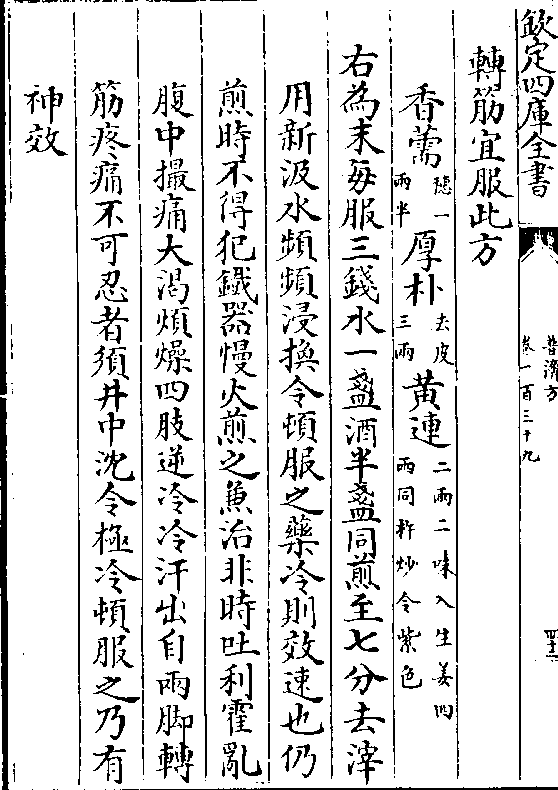 欽定四庫全書
普濟方
卷一百三十九
四十一
轉筋宜服此方
香薷 穗一兩半 厚朴 去皮三兩 黄連 二兩二味入生姜四兩同杵炒令紫色
右為末每服三錢水一盞酒半盞同煎至七分去滓
用新汲水頻頻浸換令頓服之藥冷則效速也仍
煎時不得犯鐵器慢火煎之兼治非時吐利霍亂
腹中撮痛大渴煩燥四肢逆冷冷汗出自兩脚轉
筋疼痛不可忍者須井中沈令極冷頓服之乃有
神效